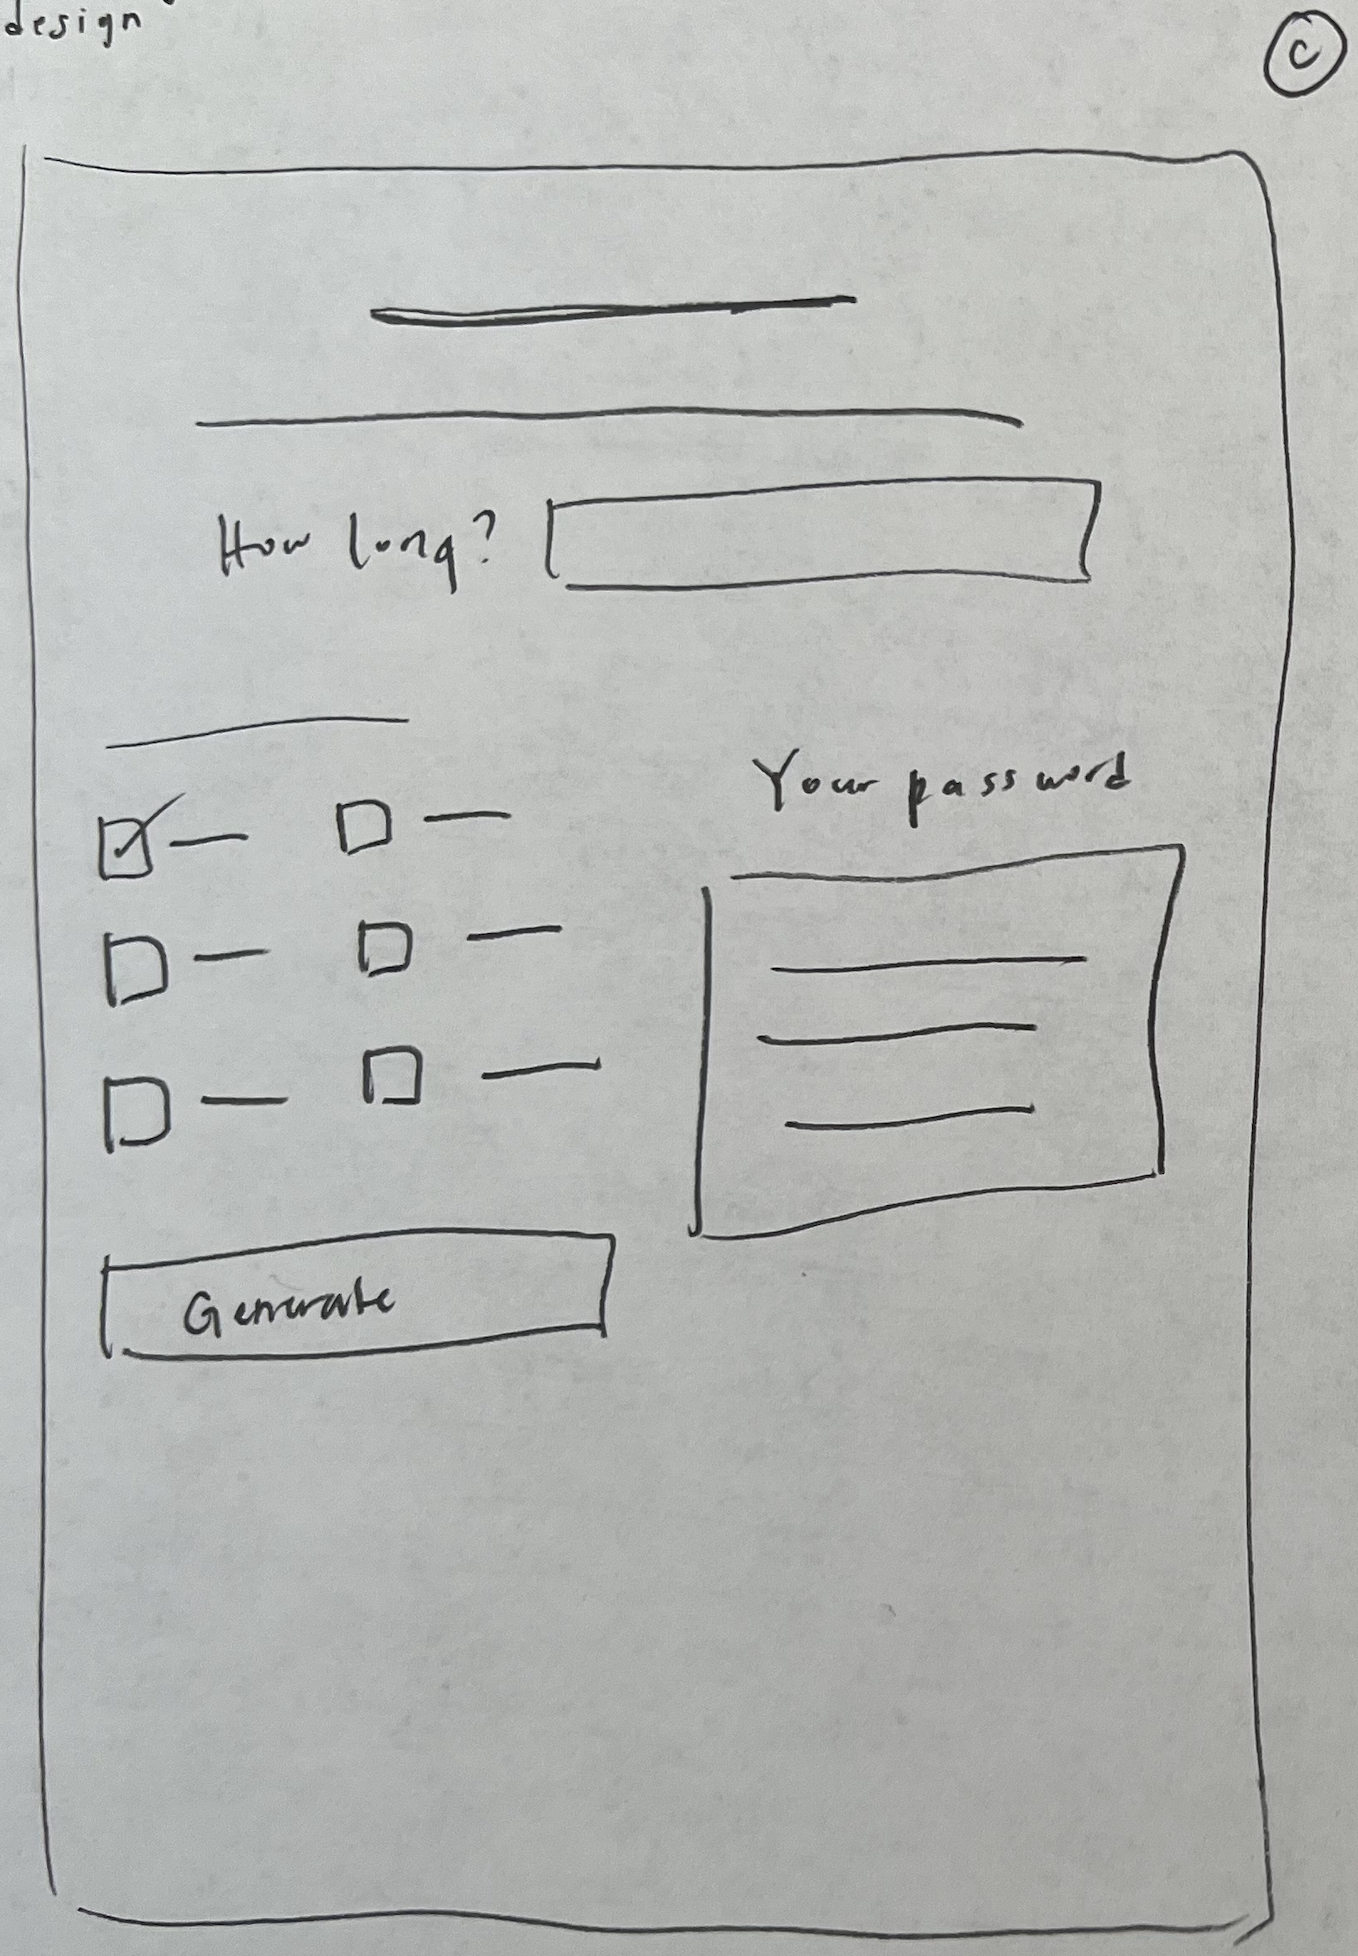 design
C
How long?
Your password
Generate